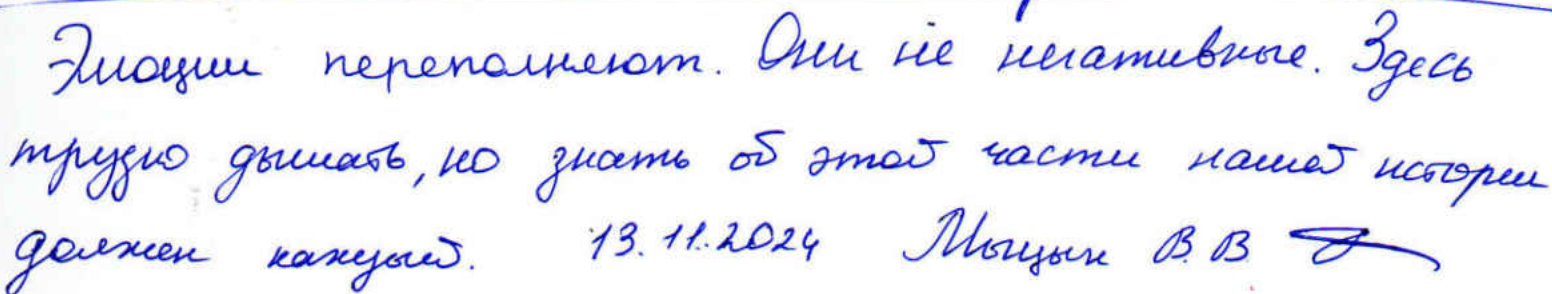 Эмоции переполняют. Они не негативные. Здесь
трудно дышать, но знать об этой части нашей истории
должен каждый. 13.11.2024 Мыцын В.В